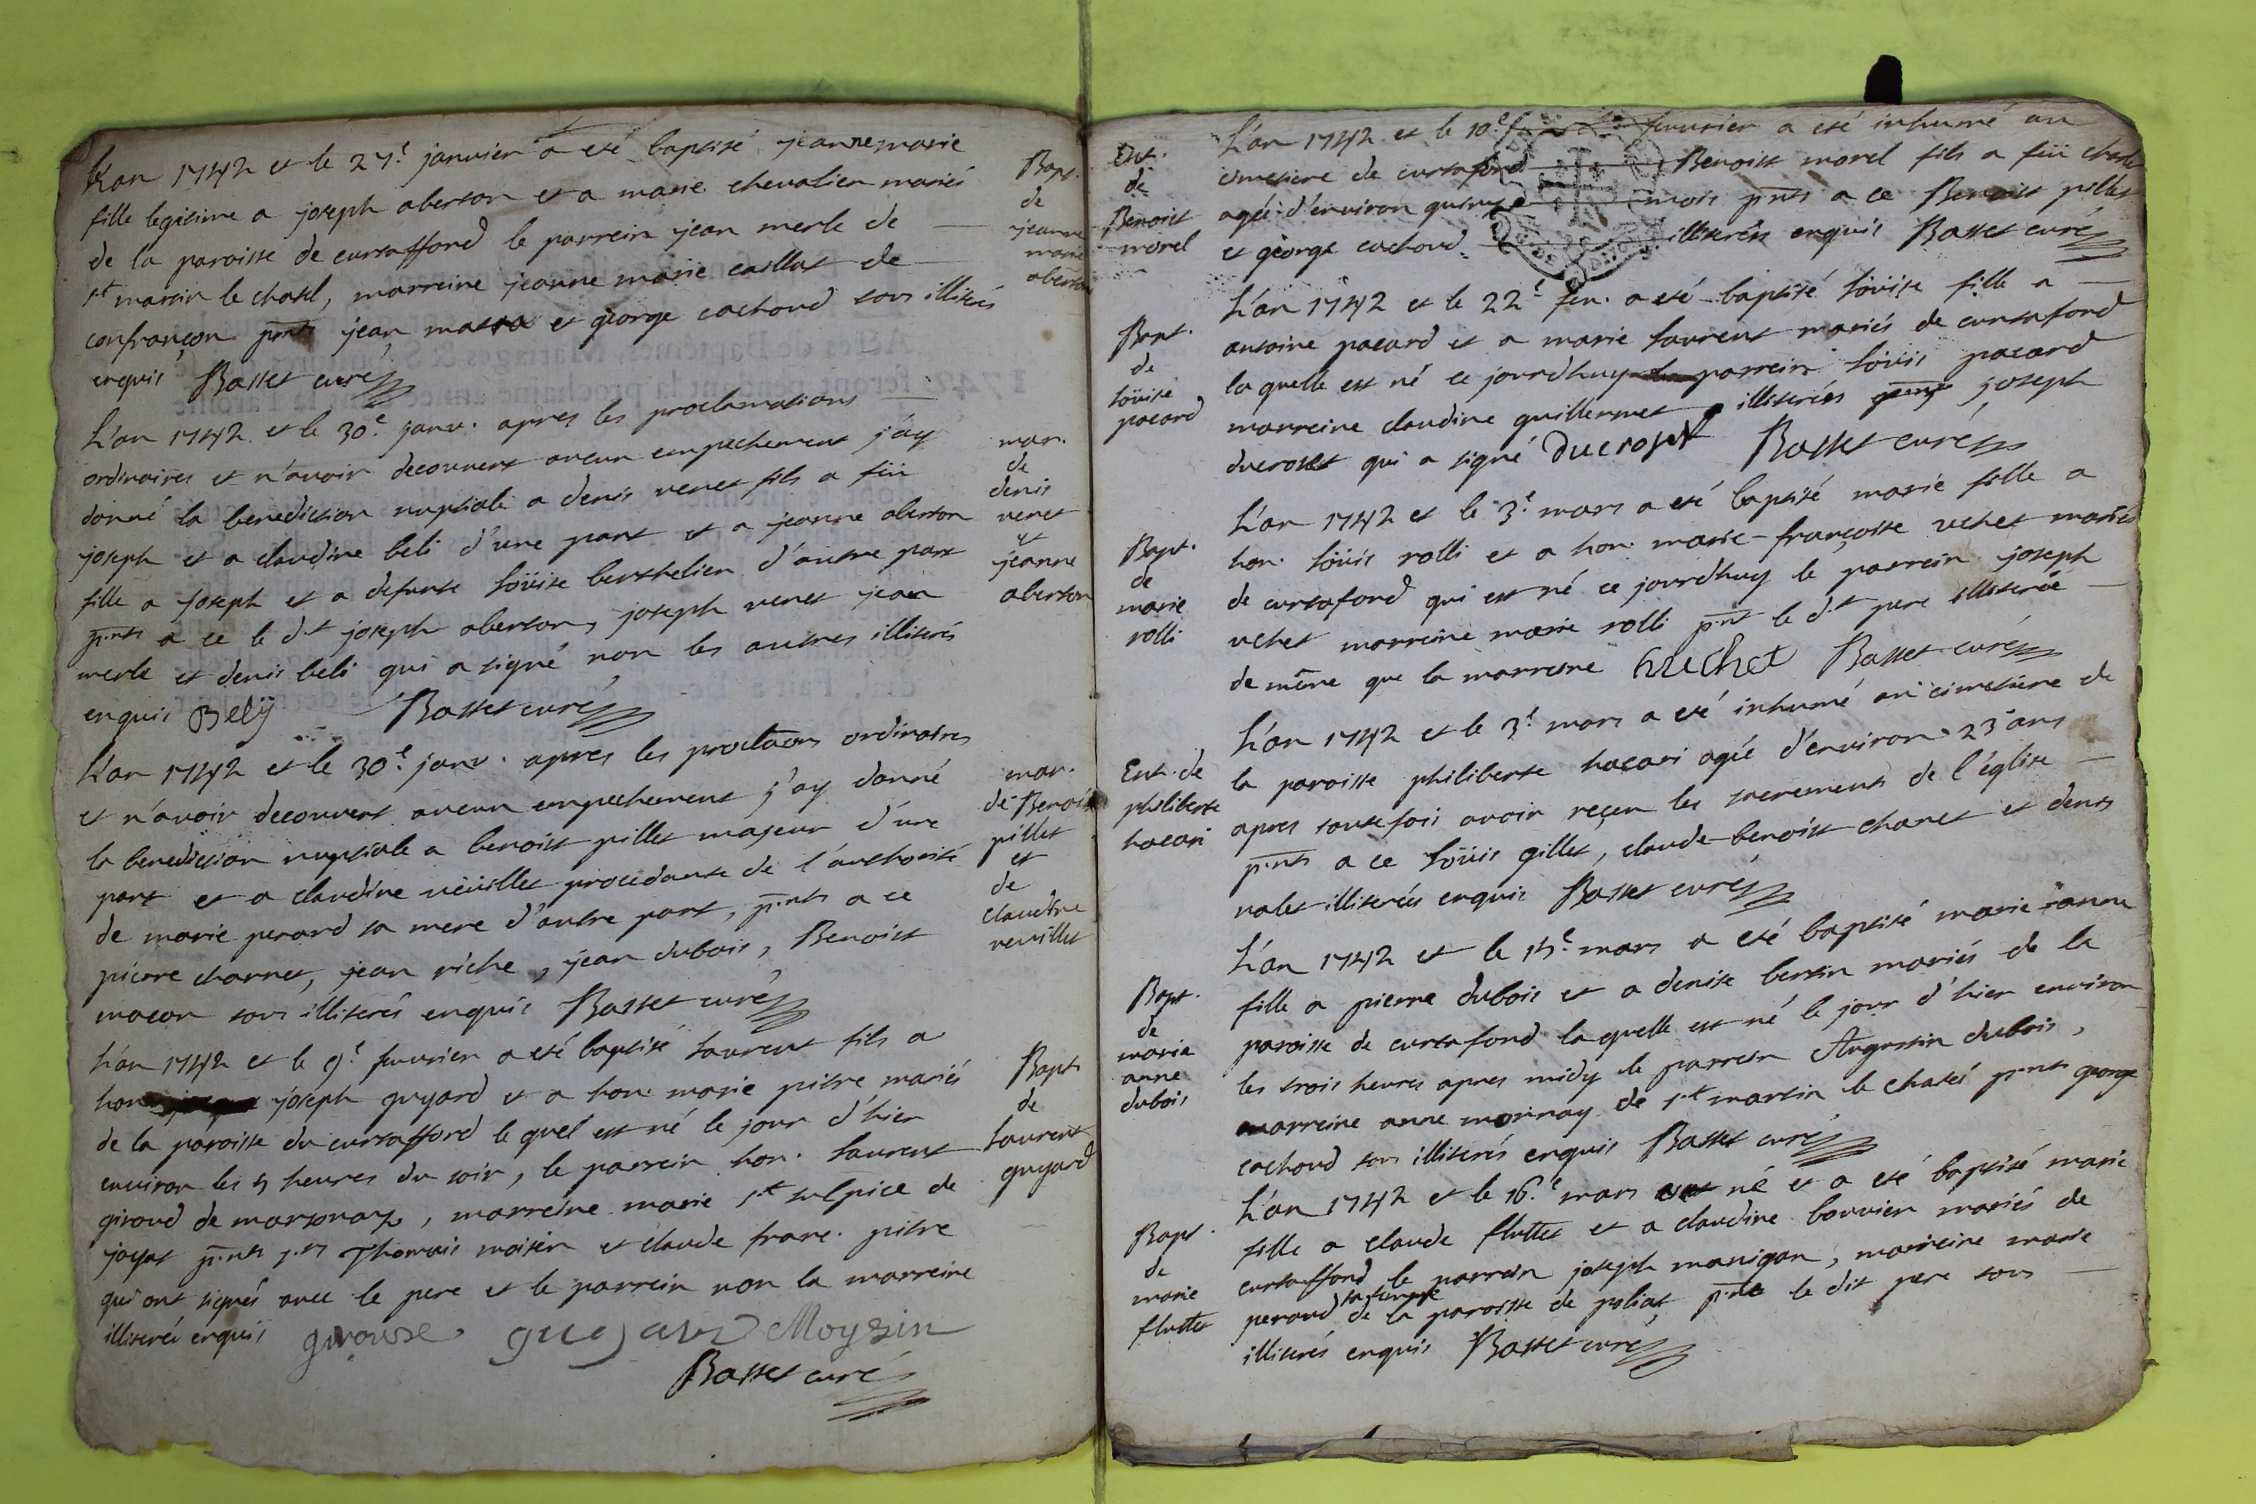 L'an 1742 et le 27.e janvier a eté baptisé jeanne marie
fille legitime a joseph aberton et a marie chevalier mariés
de la paroisse de curtaffond le parrein jean merle de
st martin le chatel, marreine jeanne marie caillat de
confrançon pnts jean et george cachoud tous illiterés
enquis Basset curé
Bapt.
de
jeanne
marie
aberton
L'an 1742 et le 30.e janv. apres les proclamations
ordinaires et n'avoir decouvert aucun empechement j'ay
donné la benediction nuptiale a denis venet fils a feü
joseph et a claudine beli d'une part et a jeanne aberton
fille a joseph et a defunte loüise berthelier d'autre part
pnts a ce le dt joseph aberton, joseph venet jean
merle et denis beli qui a signé non les autres illiterés
enquis Belÿ Basset curé
mar.
de
denis
venet
et
jeanne
aberton
L'an 1742 et le 30.e janv. apres les proclaons ordinaires
et n'avoir decouvert aucun empechement j'ay donné
la benediction nuptiale a benoist pillet majeur d'une
part et a claudine veüillet procedante de l'authorité
de marie perard sa mere d'autre part, pnts a ce
pierre charnet, jean riche, jean dubois, Benoist
macon tous illiterés enquis Basset curé
mar.
de Benoist
pillet
et
de
claudine
veuillet
L'an 1742 et le 9.e fevrier a eté baptisé laurent fils a
hon joseph guyard et a hon. marie pitre mariés
de la paroisse du curtaffond le quel est né le jour d'hier
environ les 5 heures du soir, le parrein hon. laurent
giroud de marsonaz, marreine marie st sulpice de
jayat pnts Thomas moisin et claude franc. pitre
qui ont signés avec le pere et le parrein non la marreine
illiterée enquis guyard Moyzin
Basset curé
Bapt.
de
laurent
guyard
L'an 1742 et le 10.e fevrier a eté inhumé au
cimetiere de curtafond Benoist morel fils a feü
agée d'environ quinze mois pnts a ce Benoist pillet
et george cachoud illiterés enquis Basset curé
Ent.
de
Benoist
morel
L'an 1742 et le 22.e fev. a eté baptisé loüise fille a
antoine pacard et a marie laurent mariés de curtafond
la quelle est né ce jourdhuy parrein loüis pacard
marreine claudine guillermet illiterés joseph
ducroset qui a signé Ducroset Basset curé
Bapt.
de
loüise
pacard
L'an 1742 et le 3.e mars a eté baptisé marie fille a
hon. loüis rolli et a hon. marie-françoise uchet mariés
de curtafond qui est né ce jourdhuy le parrein joseph
uchet marreine marie rolli pnt le dt pere illiterée
de même que la marreine huchet Basset curé
Bapt.
de
marie
rolli
L'an 1742 et le 3.e mars a eté inhumé au cimetiere de
la paroisse philiberte hacari agée d'environ 23 ans
apres toute fois avoir reçeu les sacrements de l'église
pnts a ce loüis gillet, claude-benoist chanet et denis
valet illiterés enquis Basset curé
Ent. de
philiberte
hacari
L'an 1742 et le 15.e mars a eté baptisé marie anne
fille a pierre dubois et a denise bertin mariés de la
paroisse de curtafond laquelle est né le jour d'hier environ
les trois heures apres midy le parrein Augustin dubois,
marreine anne moinay de st martin le chatel pnts george
cachoud tous illiterés enquis Basset curé
Bapt.
de
marie
anne
dubois
L'an 1742 et le 16.e mars est né et a eté baptisé marie
fille a claude fluttet et a claudine bouvier mariés de
curtaffond le parrein joseph manigan, marreine marie
peraud sa femme de la paroisse de poliat pnts le dit pere tous
illiterés enquis Basset curé
Bapt.
de
marie
fluttet